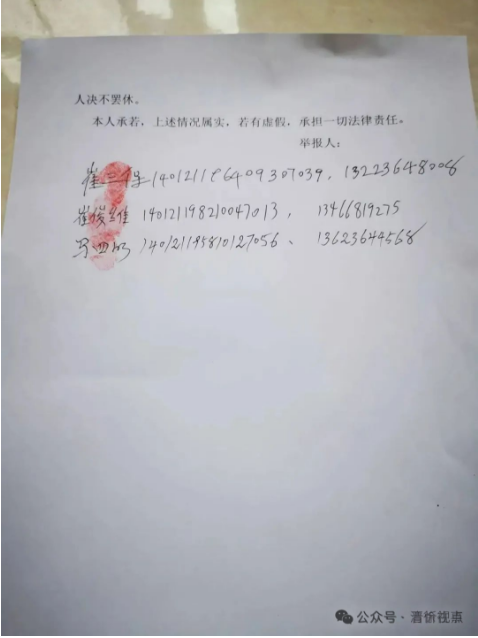 人决不罢休。
本人承若，上述情况属实，若有虚假，承担一切法律责任。
举报人：
崔三保 140121196409307039，13223648008
崔俊维 140121198210047013，13466819275
140121195810127056、13623644568
公众号·清侨视点